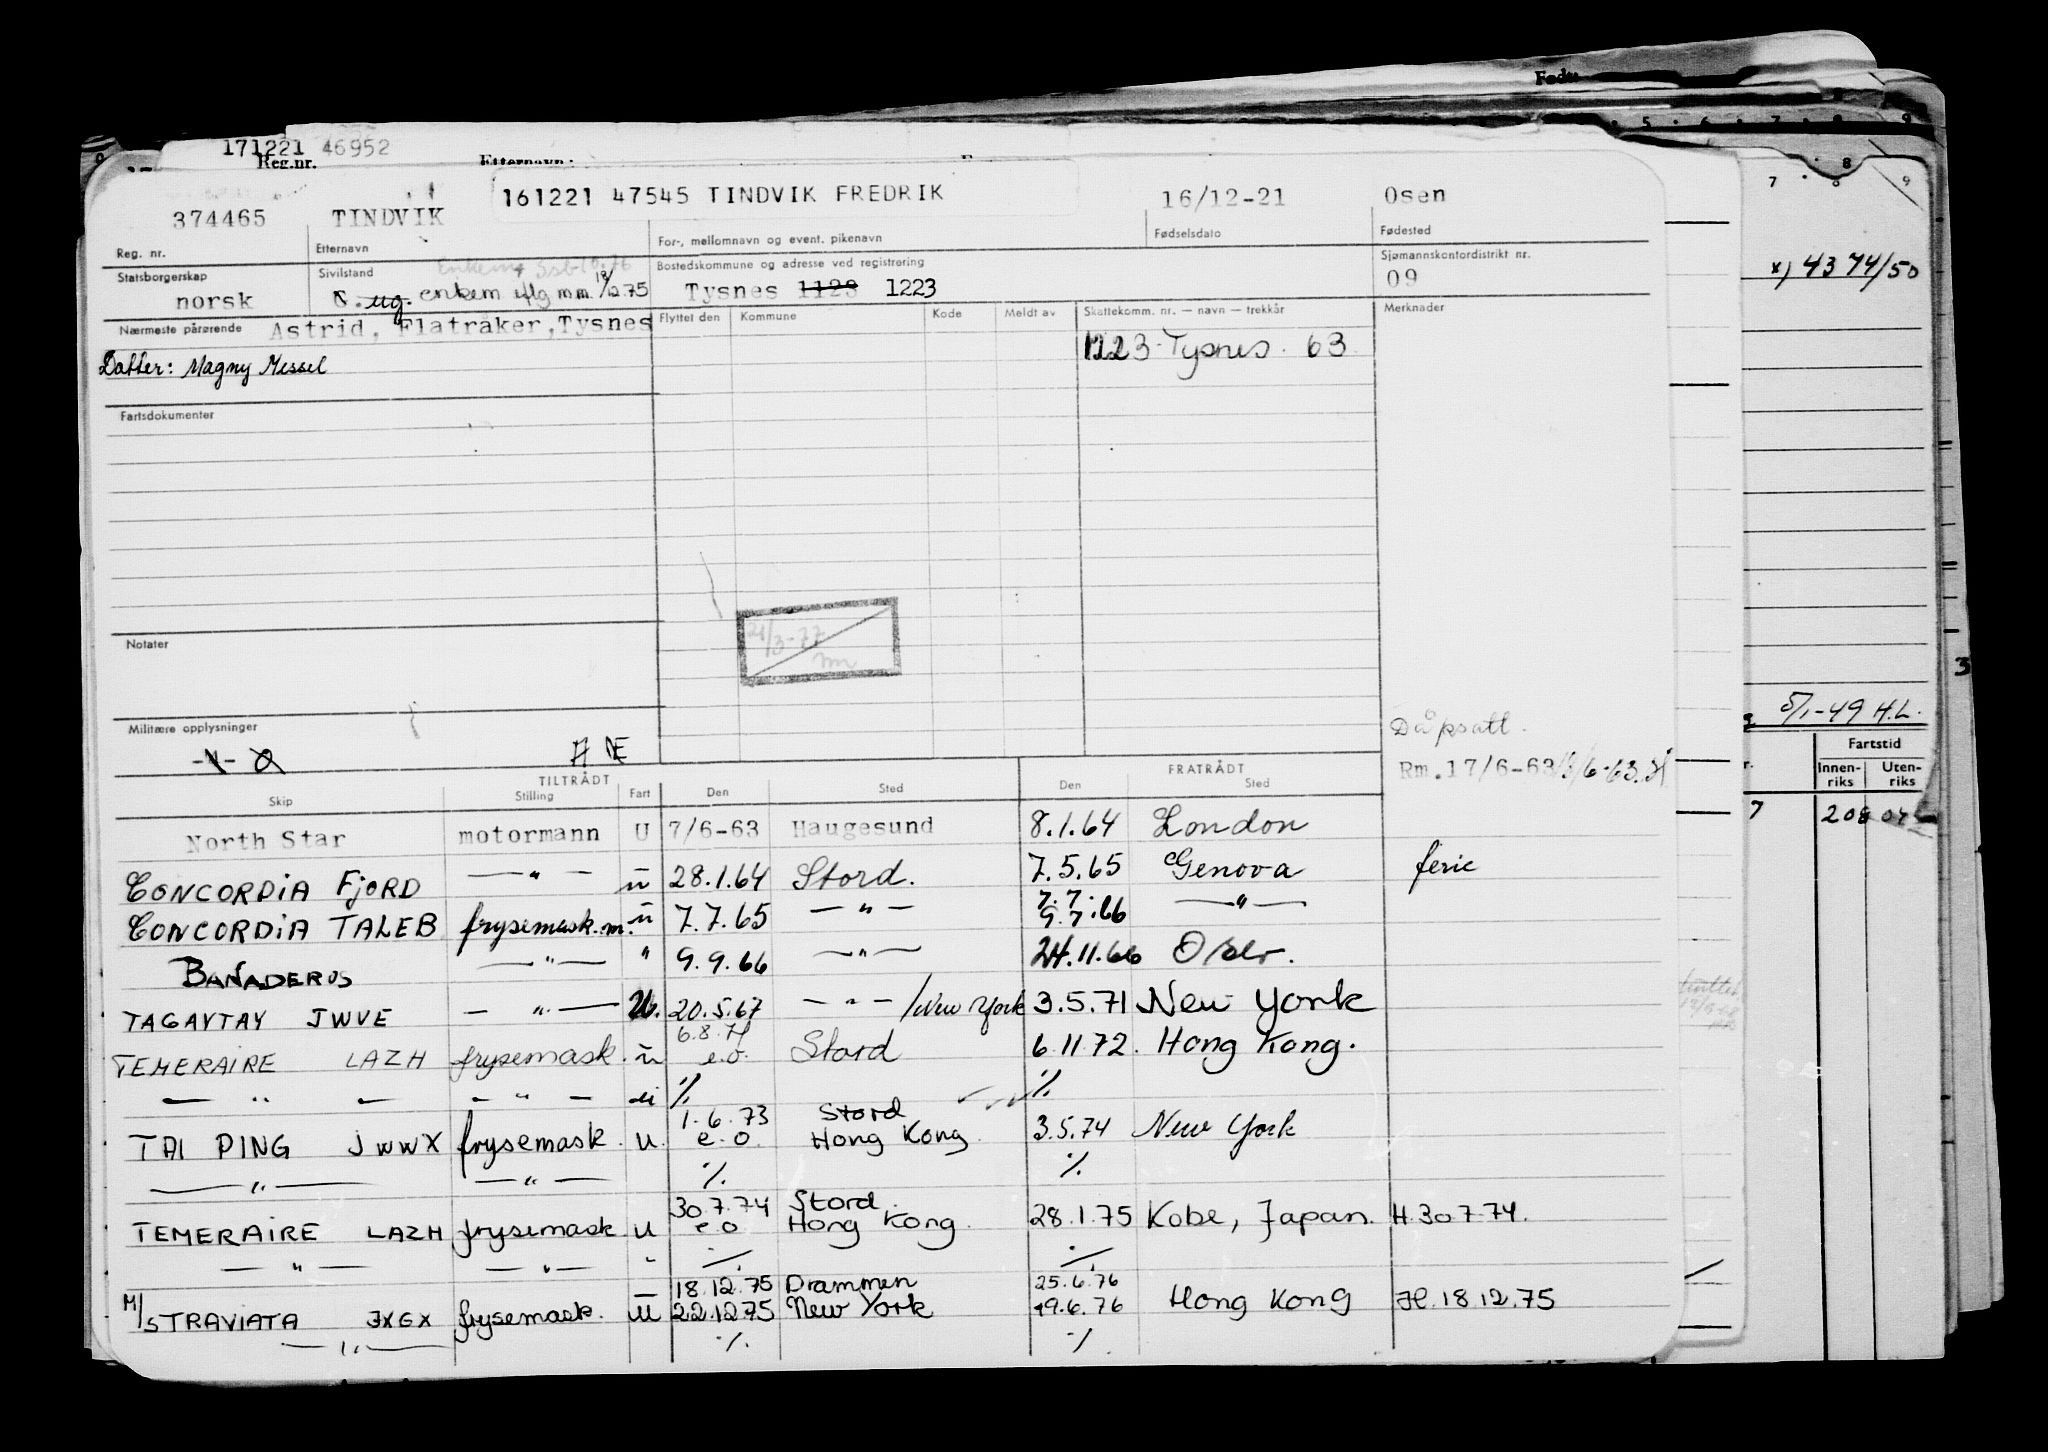 Født:
171221 46952
Reg.nr. Etternavn:
161221 47545 TINDVIK FREDRIK
374465 TINDVIK 16/12-21 Osen
Reg. nr. Etternavn For-, mellomnavn og event. pikenavn Fødselsdato Fødested
Statsborgerskap Sivilstand Bostedskommune og adresse ved registrering Sjømannskontordistrikt nr.
norsk ug. enkem iflg mm 12.75 Tysnes 1123 1223 09
Nærmeste pårørende Astrid, Flatråker, Tysnes Flyttet den Kommune Kode Meldt av Skattekomm. nr. — navn — trekkår Merknader
1223 Tysnes. 63
Datter: Magny Messel
Fartsdokumenter
21/3-77
Notater
Militære opplysninger
Dåpsatt.
Rm.17/6-63
TILTRÅDT FRATRÅDT
Skip Stilling Fart Den Sted Den Sted
North Star motormann U 7/6-63 Haugesund 8.1.64 London
CONCORDIA FJORD — " — u 28.1.64 Stord. 7.5.65 Genova ferie
CONCORDIA TALEB frysemask.m. u 7.7.65 — " — 7.7. 9.7.66 — " —
BAÑADEROS — " — " 9.9.66 — " — 24.11.66 Oslo.
TAGAYTAY JWVE — " — U. 20.5.67 — " — /New York 3.5.71 New York
6.8.71
TEMERAIRE LAZH frysemask. u e.o. Stord 6.11.72. Hong Kong.
— " — — " — u ./. ./.
1.6.73 Stord
TAI PING JWWX frysemask. u. e.o. Hong Kong. 3.5.74 New York
— " — — " — ./. ./.
30.7.74 Stord.
TEMERAIRE LAZH frysemask. u e.o Hong Kong. 28.1.75 Kobe, Japan. H.30.7.74.
— " — — " — " ./. ./.
18.12.75 Drammen 25.6.76
M/S TRAVIATA JXGX frysemask. u 22.12.75 New York 19.6.76 Hong Kong H.18.12.75
— " — ./. ./.
7 8 9
x) 4374/50
5/1-49 H.L.
Fartstid
Innen-riks Uten-riks
7 208
3